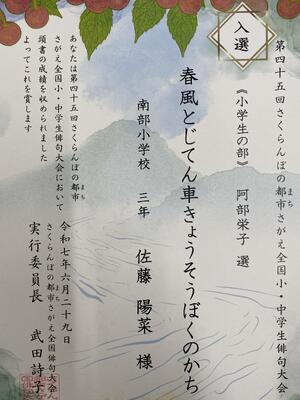 入選
第四十五回さくらんぼの都市さがえ全国小・中学生俳句大会
まち
《小学生の部》 阿部栄子 選
春風とじてん車きょうそうぼくのかち
南部小学校 三年 佐藤 陽菜 様
あなたは第四十五回さくらんぼの都市
まち
さがえ全国小・中学生俳句大会において
頭書の成績を収められました
よってこれを賞します
令和七年六月二十九日
さくらんぼの都市さがえ全国俳句大会
まち
実行委員長 武田詩子